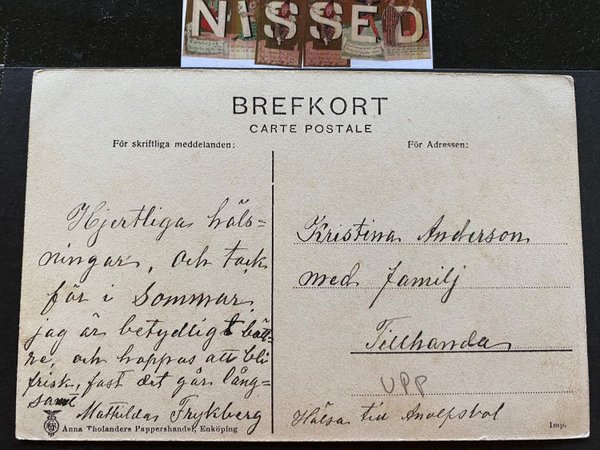 NISSED
BREFKORT
CARTE POSTALE
För skriftliga meddelanden:
För Adressen:
Hjertliga häls-
ningar, och tack
för i Sommar,
jag är betydligt bätt-
re och hoppas att bli
frisk, fast det går lång-
samt
Mathilda Frykberg
Anna Tholanders Pappershandel, Enköping
Kristina Anderson
med familj
Tillhanda
UPP
Hälsa till
Imp.